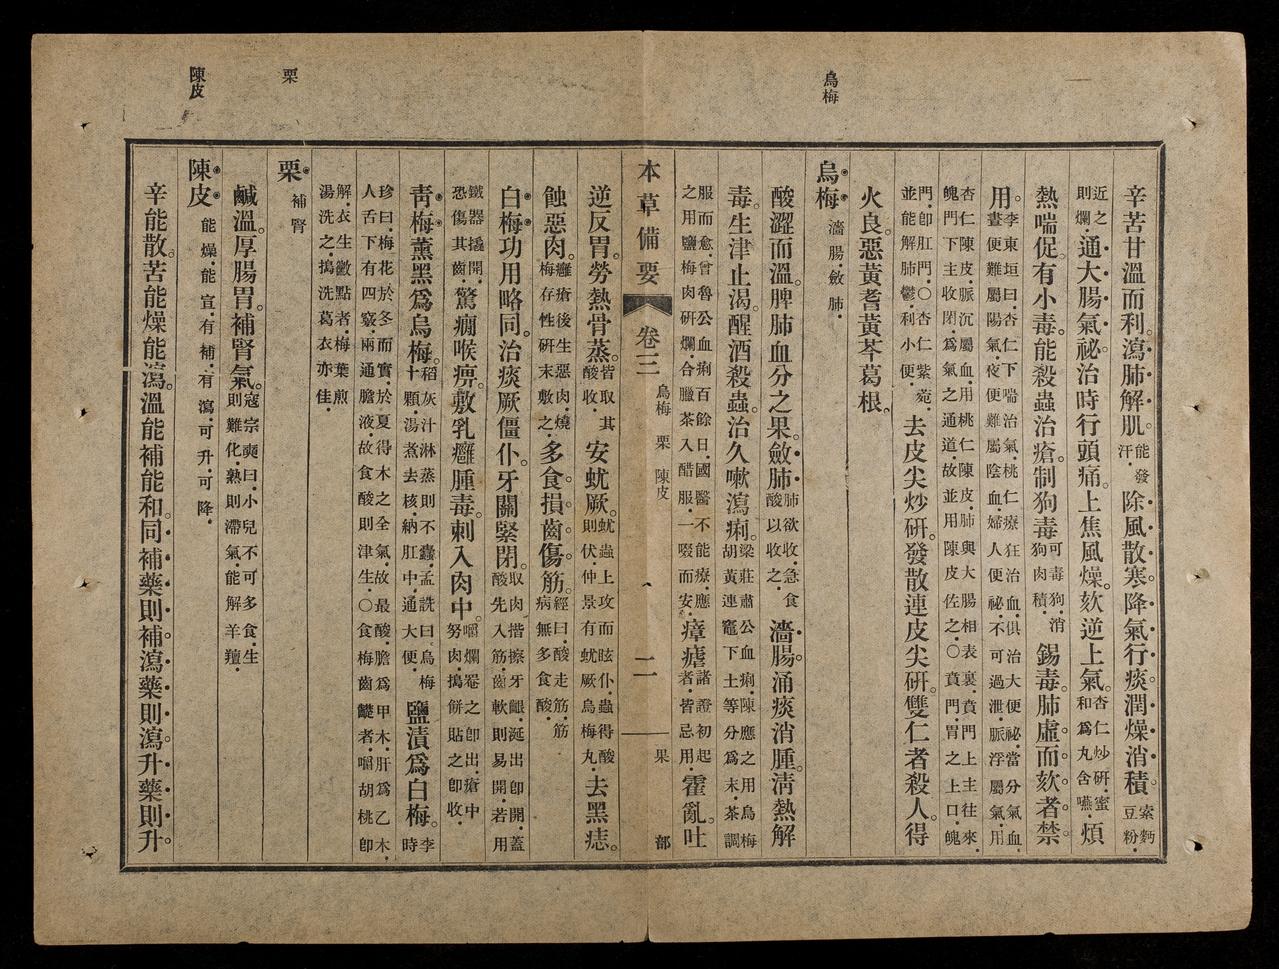 烏梅
栗
陳皮
辛苦甘溫而利。瀉肺解肌。能發汗.除風散寒。降氣行痰。潤燥消積。索麪豆粉.
近之則爛.通大腸氣祕。治時行頭痛。上焦風燥。欬逆上氣。杏仁炒研.蜜和爲丸含嚥.煩
熱喘促。有小毒。能殺蟲治瘡。制狗毒可毒狗.消狗肉積.錫毒。肺虛而欬者禁
用。李東垣曰.杏仁下喘治氣.桃仁療狂治血.俱治大便祕.當分氣血.晝便難屬陽氣.夜便難屬陰血.婦人便祕.不可過泄.脈浮屬氣.用
杏仁陳皮.脈沉屬血.用桃仁陳皮.肺與大腸相表裏.賁門上主往來.魄門下主收閉.爲氣之通道.故並用陳皮佐之.〇賁門.胃之上口.魄
門.卽肛門.〇杏仁紫菀.並能解肺鬱.利小便.去皮尖炒研。發散連皮尖研。雙仁者殺人。得
火良。惡黃耆黃芩葛根。
烏梅 濇腸.斂肺.
酸澀而溫。脾肺血分之果。斂肺肺欲收.急食酸以收之.濇腸。涌痰消腫。淸熱解
毒。生津止渴。醒酒殺蟲。治久嗽瀉痢。梁莊肅公血痢.陳應之用烏梅胡黃連竈下土等分爲末.茶調
服而愈.曾魯公血痢百餘日.國醫不能療.應之用鹽梅肉研爛.合臘茶入醋服.一啜而安.瘴瘧諸證初起者.皆忌用.霍亂。吐
本草備要 卷三 烏梅 栗 陳皮 二一 果部
逆反胃。勞熱骨蒸。皆取其酸收.安蚘厥。蚘蟲上攻而眩仆.蟲得酸則伏.仲景有蚘厥烏梅丸.去黑痣。
蝕惡肉。癰瘡後生惡肉.燒梅存性研末敷之.多食損齒傷筋。經曰.酸走筋.筋病無多食酸.
白梅功用略同。治痰厥僵仆。牙關緊閉。取肉揩擦牙齦.涎出卽開.蓋酸先入筋.齒軟則易開.若用
鐵器撬開.恐傷其齒.驚癇喉痹。敷乳癰腫毒。刺入肉中。嚼爛罨之卽出.瘡中努肉.搗餅貼之卽收.
靑梅薰黑爲烏梅。稻灰汁淋蒸則不蠹.孟詵曰.烏梅十顆.湯煮去核.納肛中.通大便.鹽漬爲白梅。李時
珍曰.梅花於冬而實於夏.得木之全氣.故最酸.膽爲甲木.肝爲乙木.人舌下有四竅.兩通膽液.故食酸則津生.〇食梅齒齼者.嚼胡桃卽
解.衣生黴點者.梅葉煎湯洗之.搗洗葛衣亦佳.
栗 補腎
鹹溫。厚腸胃。補腎氣。寇宗奭曰.小兒不可多食.生則難化.熟則滯氣.能解羊羶.
陳皮 能燥.能宣.有補.有瀉.可升.可降.
辛能散。苦能燥能瀉。溫能補能和。同補藥則補。瀉藥則瀉。升藥則升。